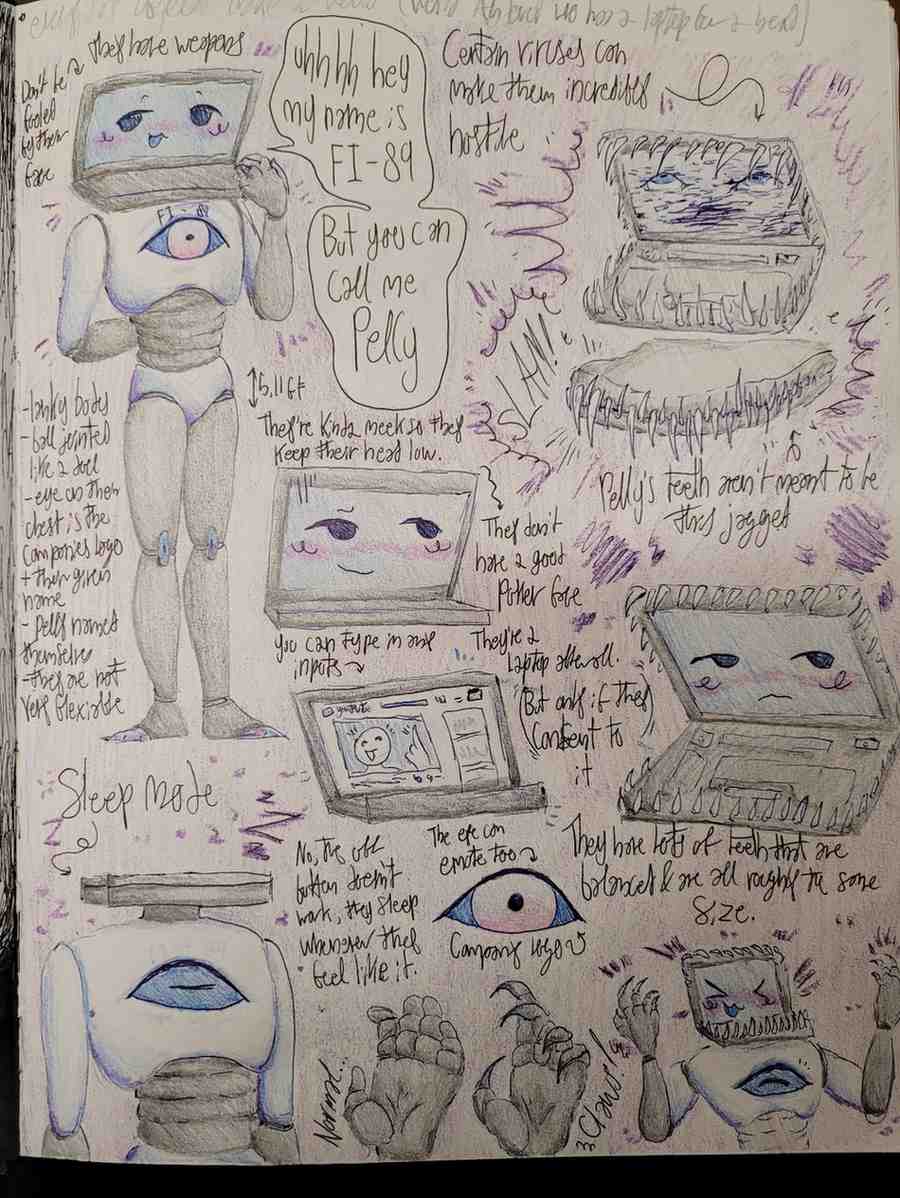 They have weapons
Don't be
fooled
by their
face
uhhhh hey
my name is
FI-89
But you can
call me
Pelly
FI-89
Certain viruses can
make them incredibly
hostile
SLAM!
Pelly's teeth aren't meant to be
this jagged
5.11 ft
-lanky body
-ball jointed
like a doll
-eye on their
chest is the
companies logo
+ their given
name
-Pelly named
themselves
-they are not
very flexible
They're kinda meek so they
keep their head low.
They don't
have a good
Poker face
you can type in any
inputs
They're a
laptop after all.
(But only if they
consent to
it)
youtube
They have lots of teeth that are
balanced & are all roughly the same
size.
Sleep mode
No, the off
button doesn't
work, they sleep
whenever they
feel like it.
The eye can
emote too
Company logo
Normal...
Claws!